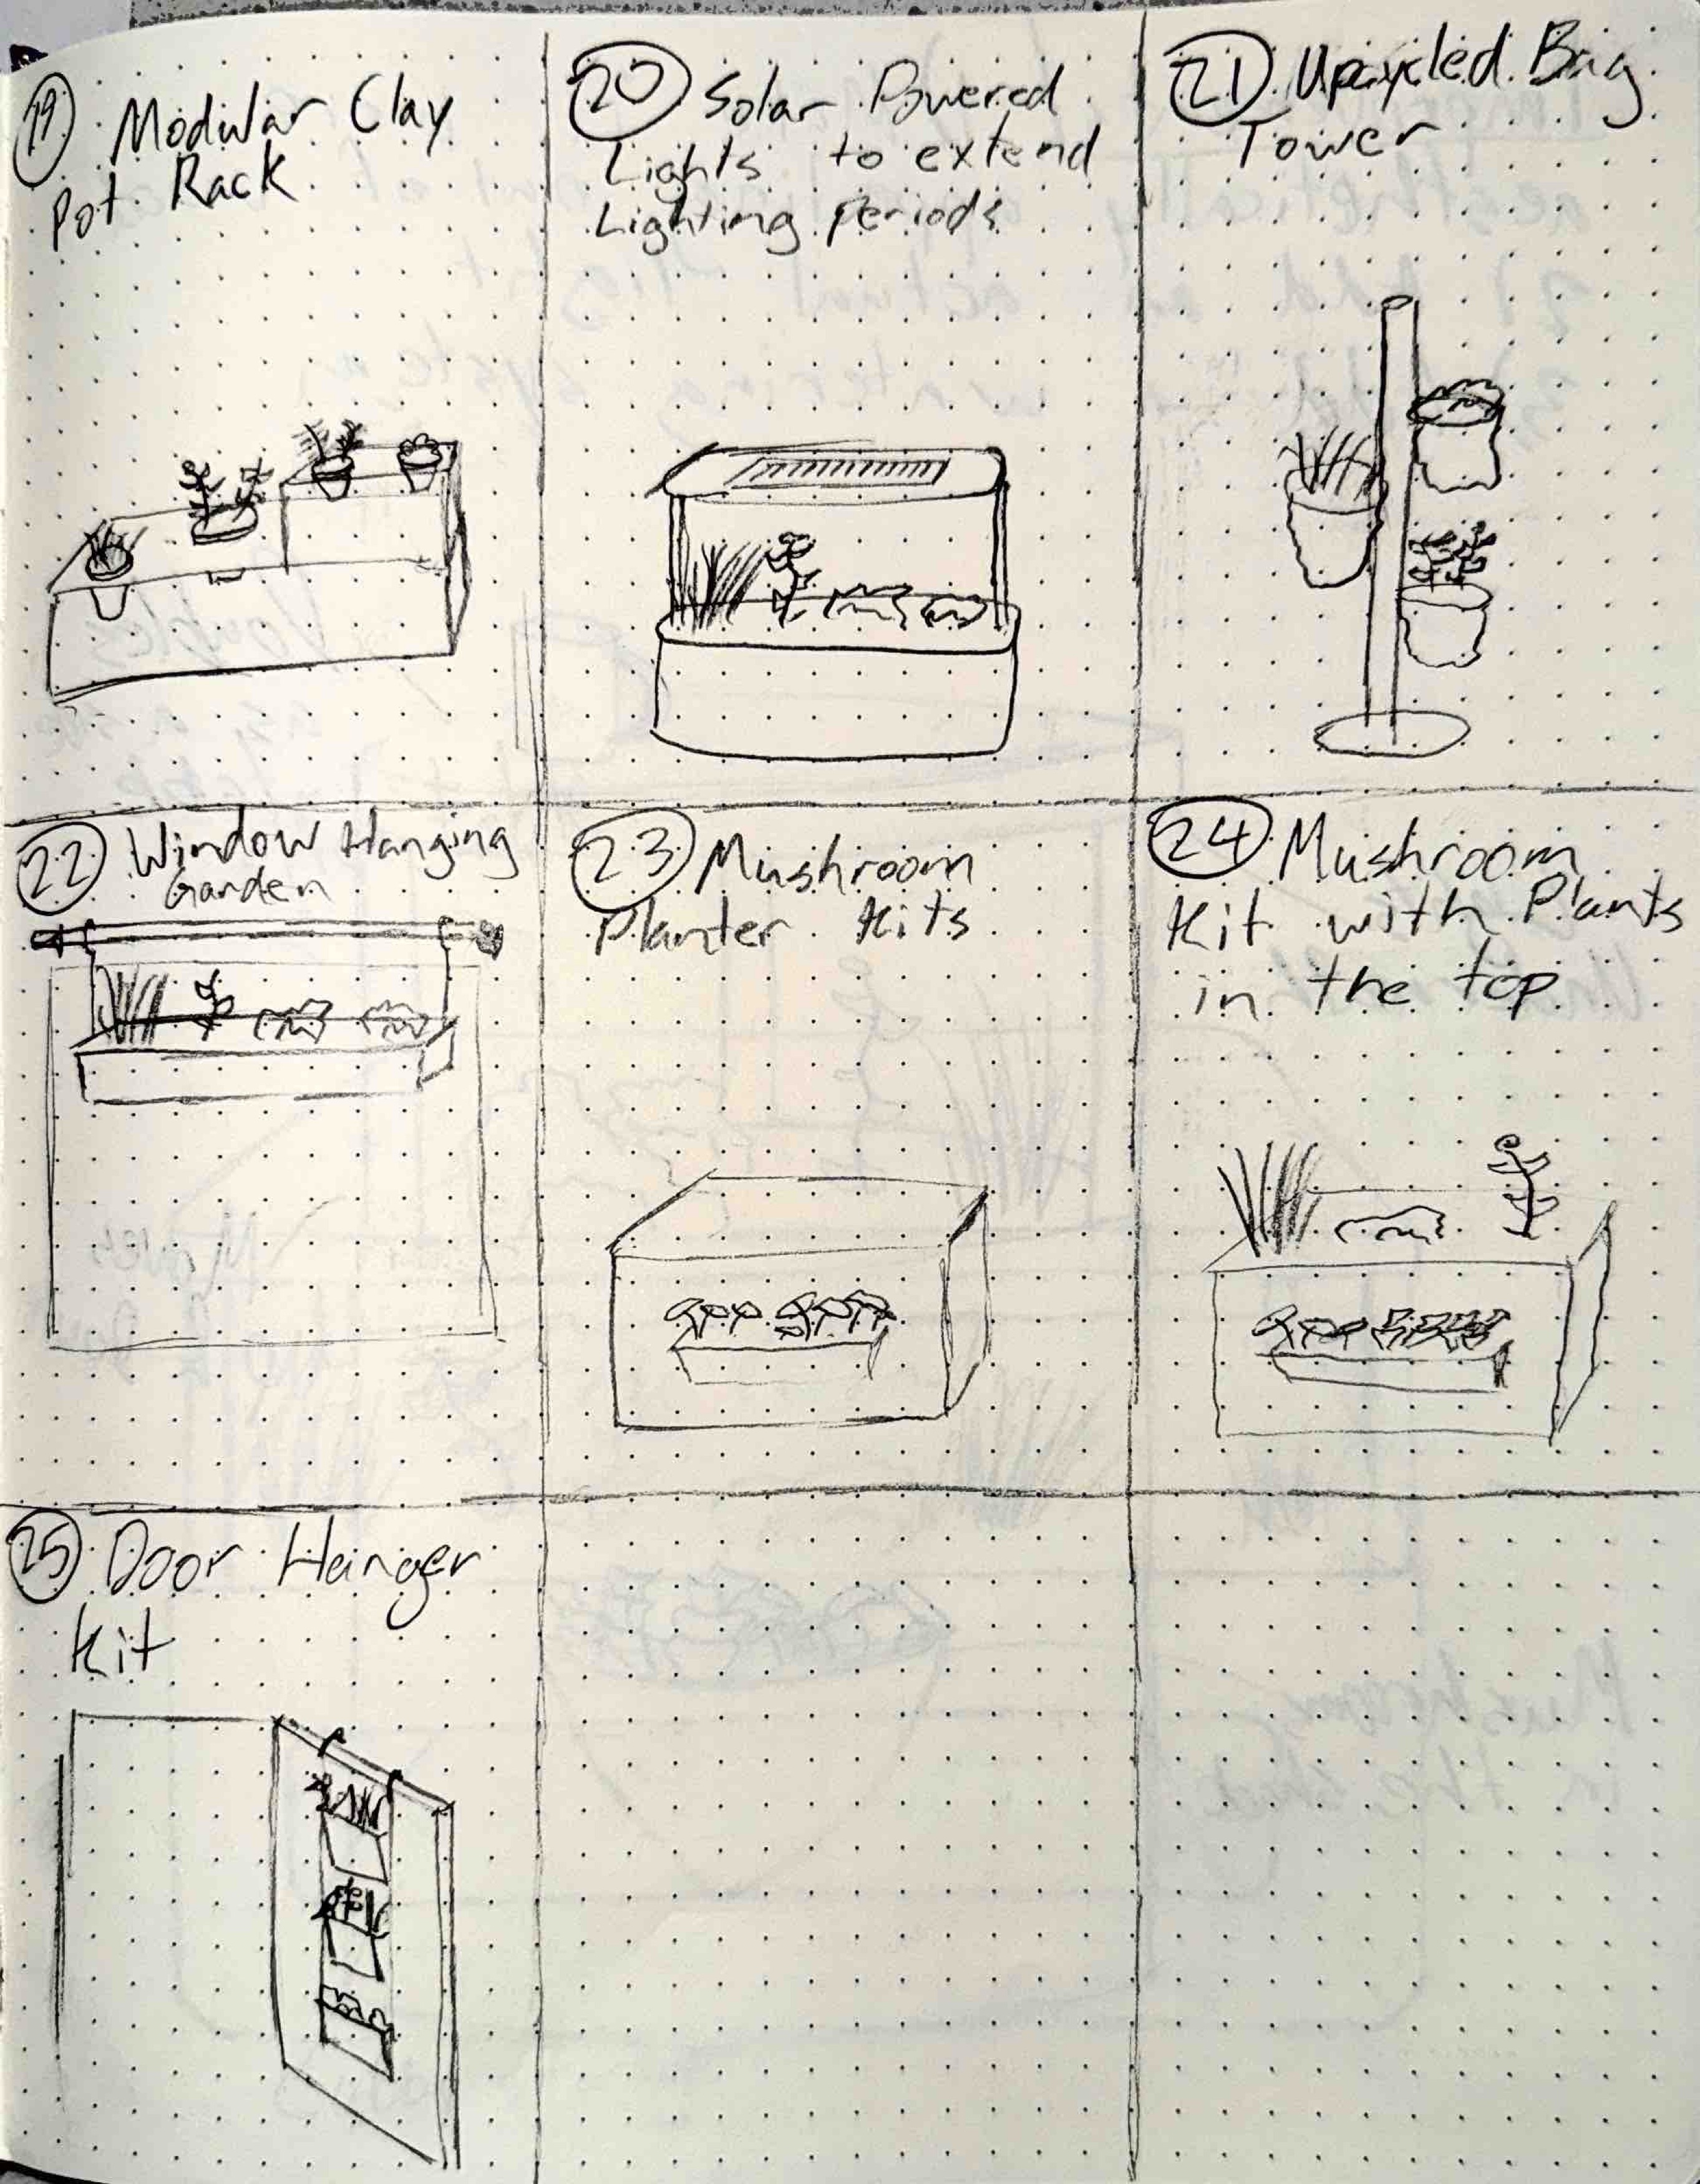 19 Modular Clay
Pot Rack
20 Solar Powered
Lights to extend
Lighting periods
21 Upcycled Bag
Tower
22 Window Hanging
Garden
23 Mushroom
Planter Kits
24 Mushroom
Kit with Plants
in the top
25 Door Hanger
Kit